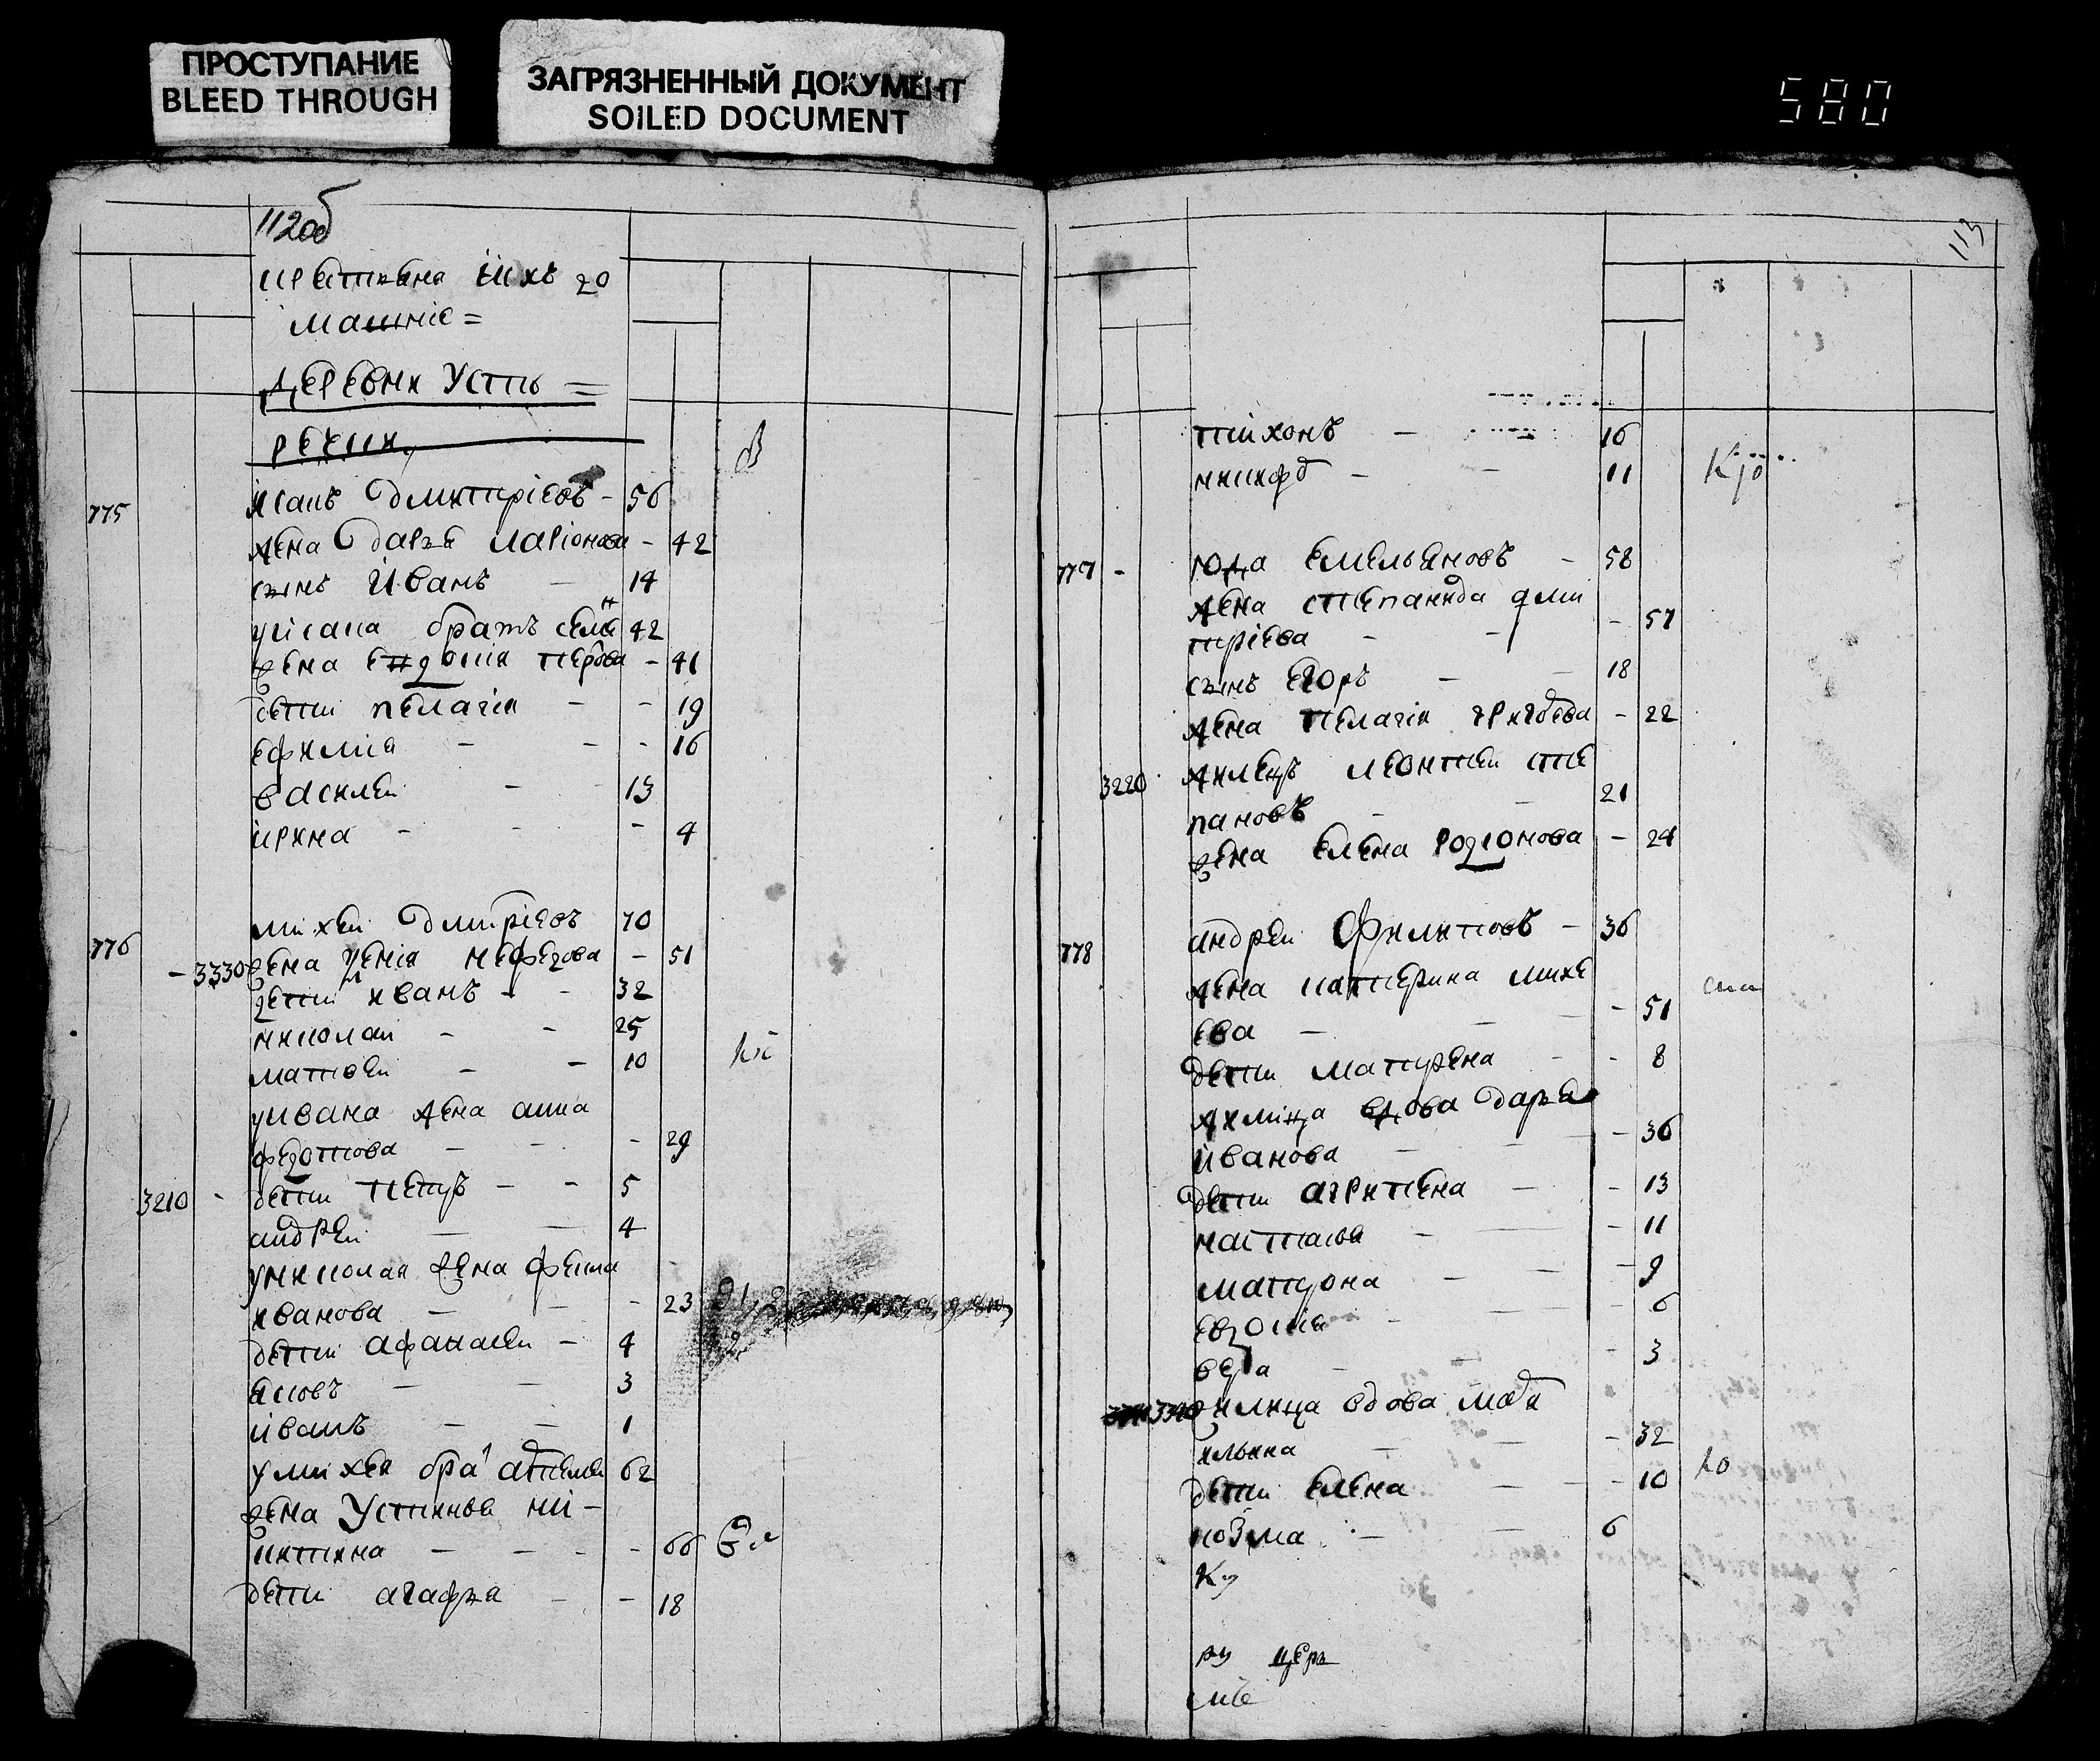 ПРОСТУПАНИЕ
BLEED THROUGH
ЗАГРЯЗНЕННЫЙ ДОКУМЕНТ
SOILED DOCUMENT
580
112об
крестьяне ихъ до
машние =
деревня Усть =
речки
775 Исакъ Дмитріевъ - 56
жена Дарья Ларіонова - 42
сынъ Иванъ - 14
уісака братъ семенъ 42
жена Евдокія петрова - 41
дети пелагія - - 19
ефимія - - - 16
василеи - 13
ирина - - - 4
776 михеи Дмитріевъ 70
- 3330 жена ксенія нефедова - 51
дети иванъ - - 32
николаи - - 25
матвеи - - 10
уивана жена анна
федотова - - - 29
3210 - дети петръ - - 5
андреи - - 4
униколая жена фекла
иванова - - - 23
дети афанасеи - 4
яковъ - - 3
иванъ - - 1
умихея бра артемеи 62
жена Устинья ни -
китина - - - - 66
дети агафья - - 18
113
тихонъ - 16
никифо - - 11
777 - юда емельяновъ - 58
жена степанида дми
тріева - - - 57
сынъ егоръ - - 18
жена пелагія григорева - 22
3220 жилецъ леонтеи сте
пановъ - - 21
жена елена родіонова - 24
778 андреи филиповъ - 36
жена катерина михе
ева - - - 51
дети матрена - - 8
жилица вдова дарья
иванова - - - 36
дети агрипена - - 13
настасья - - - 11
матрона - - - 9
евдокія - - - 6
вера - - - 3
жилица вдова
ильина - - - 32
дети елена - - 10
козма - - 6